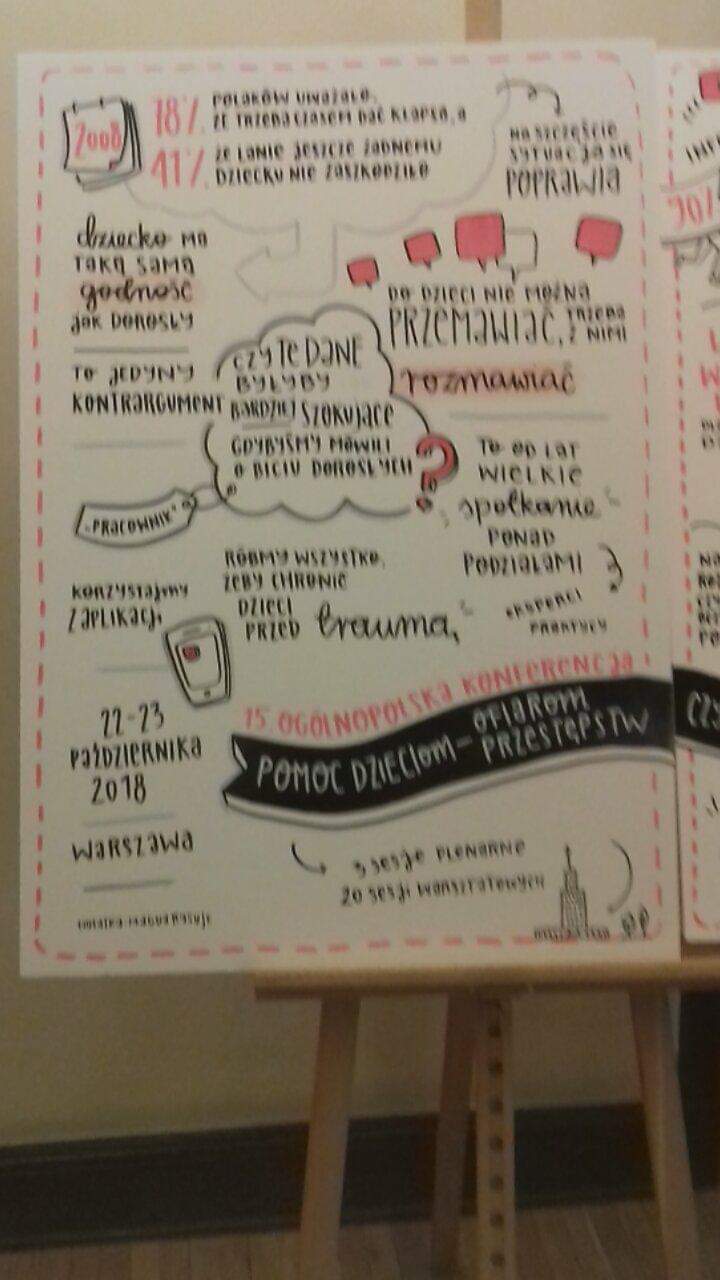 2008
78%
POLAKÓW UWAŻAŁO,
ŻE TRZEBA CZASEM DAĆ KLAPSA, A
41%
ŻE LANIE JESZCZE ŻADNEMU
DZIECKU NIE ZASZKODZIŁO
NA SZCZĘŚCIE
SYTUACJA SIĘ
POPRAWIA
dziecko MA
TAKĄ SAMĄ
godność
JAK DOROSŁY
TO JEDYNY
KONTRARGUMENT
DO DZIECI NIE MOŻNA
PRZEMAWIAĆ, TRZEBA
Z NIMI
rozmawiać
CZY TE DANE
BYŁYBY
BARDZIEJ SZOKUJĄCE
GDYBYŚMY MÓWILI
O BICIU DOROSŁYCH
?
„PRACOWNIK”
TO OD LAT
WIELKIE
spotkanie
PONAD
PODZIAŁAMI
EKSPERCI
PRAKTYCY
RÓBMY WSZYSTKO,
ŻEBY CHRONIĆ
DZIECI
PRZED traumą,
KORZYSTAJMY
Z APLIKACJI
22-23
PAŹDZIERNIKA
2018
WARSZAWA
15 OGÓLNOPOLSKA KONFERENCJA
POMOC DZIECIOM – OFIAROM
PRZESTĘPSTW
SESJE PLENARNE
20 SESJI WARSZTATOWYCH
90%